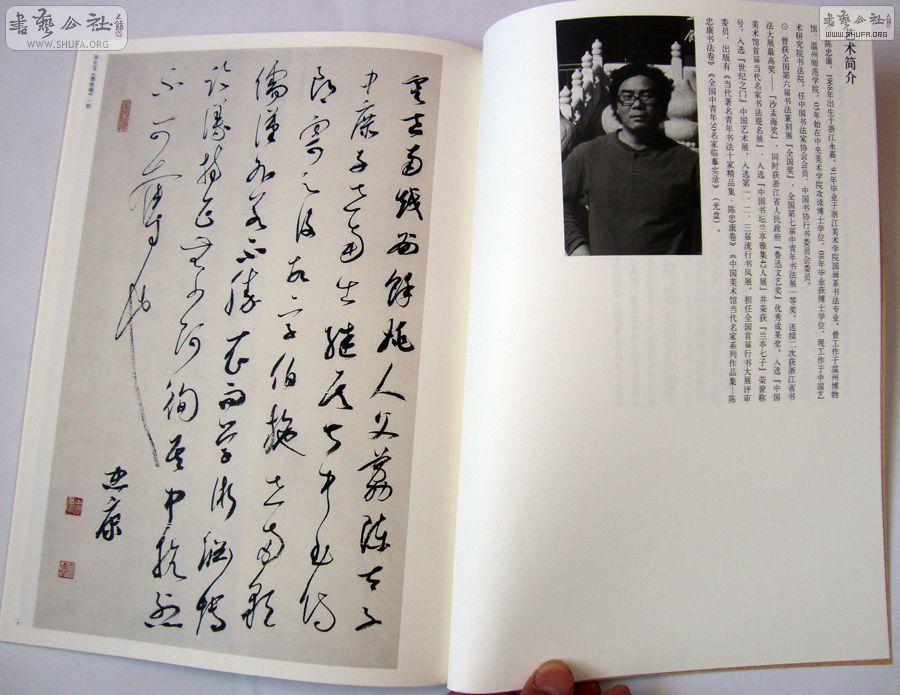 艺术简介
陈忠康，1968年出生于浙江永嘉，91年毕业于浙江美术学院国画系书法专业，曾工作于温州博物
馆、温州师范学院，05年始在中央美术学院攻读博士学位，08年毕业获博士学位，现工作于中国艺
术研究院书法院，任中国书法家协会会员，中国书协行书委员会委员。
⊙ 曾获全国第六届书法篆刻展『全国奖』，全国第七届中青年书法展一等奖，连续二次获浙江省书
法大展最高奖——『沙孟海奖』，同时获浙江省人民政府『鲁迅文艺奖』优秀成果奖。入选『中国
美术馆首届当代名家书法提名展』，入选『中国书坛兰亭雅集42人展』并荣获『兰亭七子』荣誉称
号，入选『世纪之门』中国艺术展，入选第一、二、三届流行书风展，担任全国首届行书大展评审
委员，出版有《当代著名青年书法十家精品集·陈忠康卷》《中国美术馆当代名家系列作品集—陈
忠康书法卷》《全国中青年50名家临摹实录》（光盘）。
虞世南越州餘姚人父荔陳太子
中庶子世南出繼其叔中書侍
郎寄之後故字伯施世南貌
儒謹外若不勝衣而學術淵博
論議持正無少阿徇其中抗烈
不可奪也
忠康
書藝公社
WWW.SHUFA.ORG
書藝公社
WWW.SHUFA.ORG